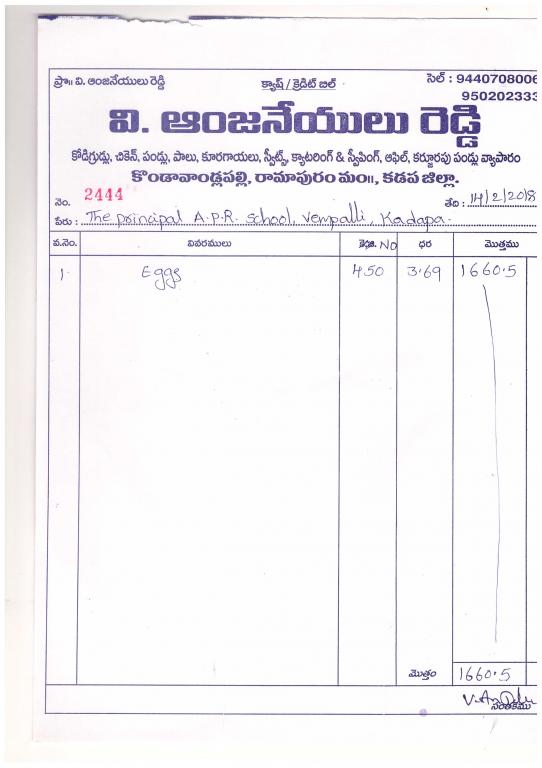 ప్రొ॥ వి. ఆంజనేయులు రెడ్డి క్యాష్ / క్రెడిట్ బిల్ సెల్ : 9440708006
950202333
వి. ఆంజనేయులు రెడ్డి
కోడిగ్రుడ్లు, చికెన్, పండ్లు, పాలు, కూరగాయలు, స్వీట్స్, క్యాటరింగ్ & స్వీపింగ్, ఆఫిల్, కర్జూరపు పండ్లు వ్యాపారం
కొండావాండ్లపల్లి, రామాపురం మం॥, కడప జిల్లా.
నెం. 2444 తేది : 14/2/2018
పేరు : The principal A.P.R. School, Vempalli, Kadapa.
వ.నెం. వివరములు కెజి. No ధర మొత్తము
1 Eggs 450 3.69 1660.5
మొత్తం 1660.5
సంతకము